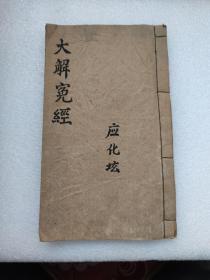 大解冤經
应化坛